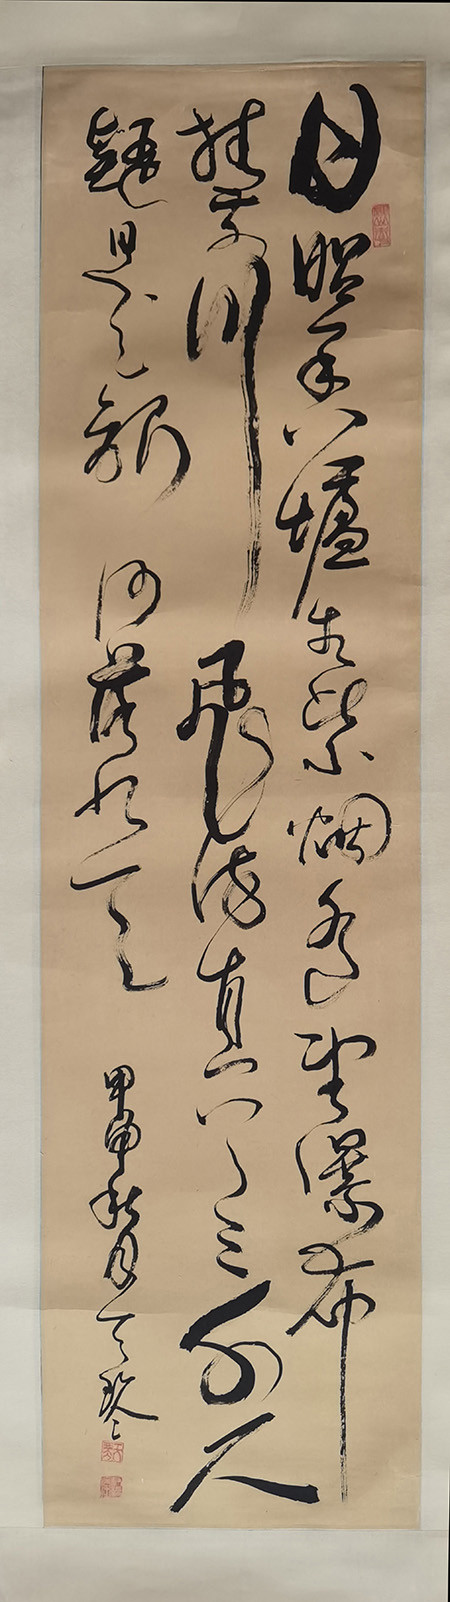 日照香爐生紫烟遙望瀑布
挂前川飛流直下三千尺
疑是銀河落九天
甲申秋月